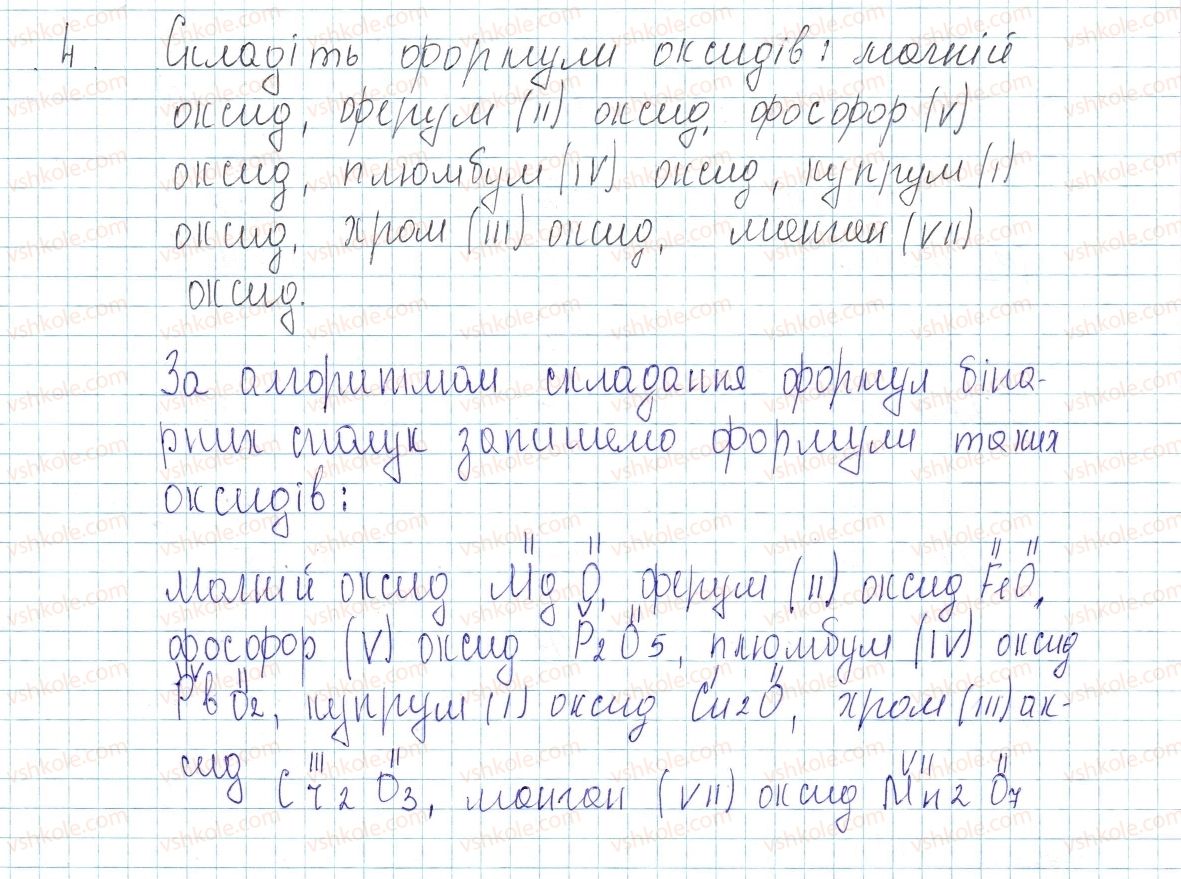 4. Складіть формули оксидів: магній
оксид, ферум (II) оксид, фосфор (V)
оксид, плюмбум (IV) оксид, купрум (I)
оксид, хром (III) оксид, манган (VII)
оксид.
За алгоритмом складання формул біна-
рних сполук запишемо формули таких
оксидів:
II II II II
Магній оксид MgO, ферум (II) оксид FeO,
V II
фосфор (V) оксид P2O5, плюмбум (IV) оксид
IV II I II
PbO2, купрум (I) оксид Cu2O, хром (III) ак-
III II VII II
сид Cr2O3, манган (VII) оксид Mn2O7
vshkole.com